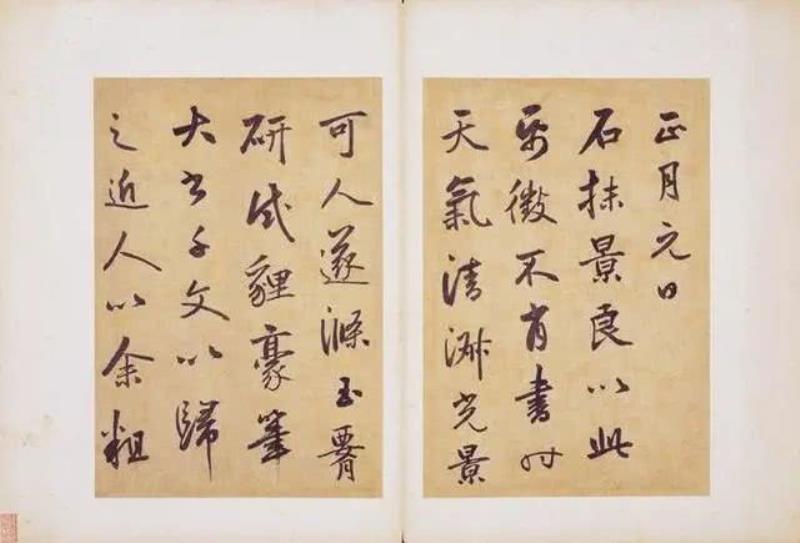 正月元日
石抹景良以此
帋徵不肖書时
天氣清淑光景
可人遂滌玉
研試貍豪筆
大书千文以歸
之近人以余粗